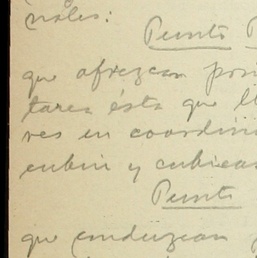 nales:
Punto P
que ofrezcan posi
tarea ésta que ll
res en coordin
cubin y cubica
Punto
que conduzcan